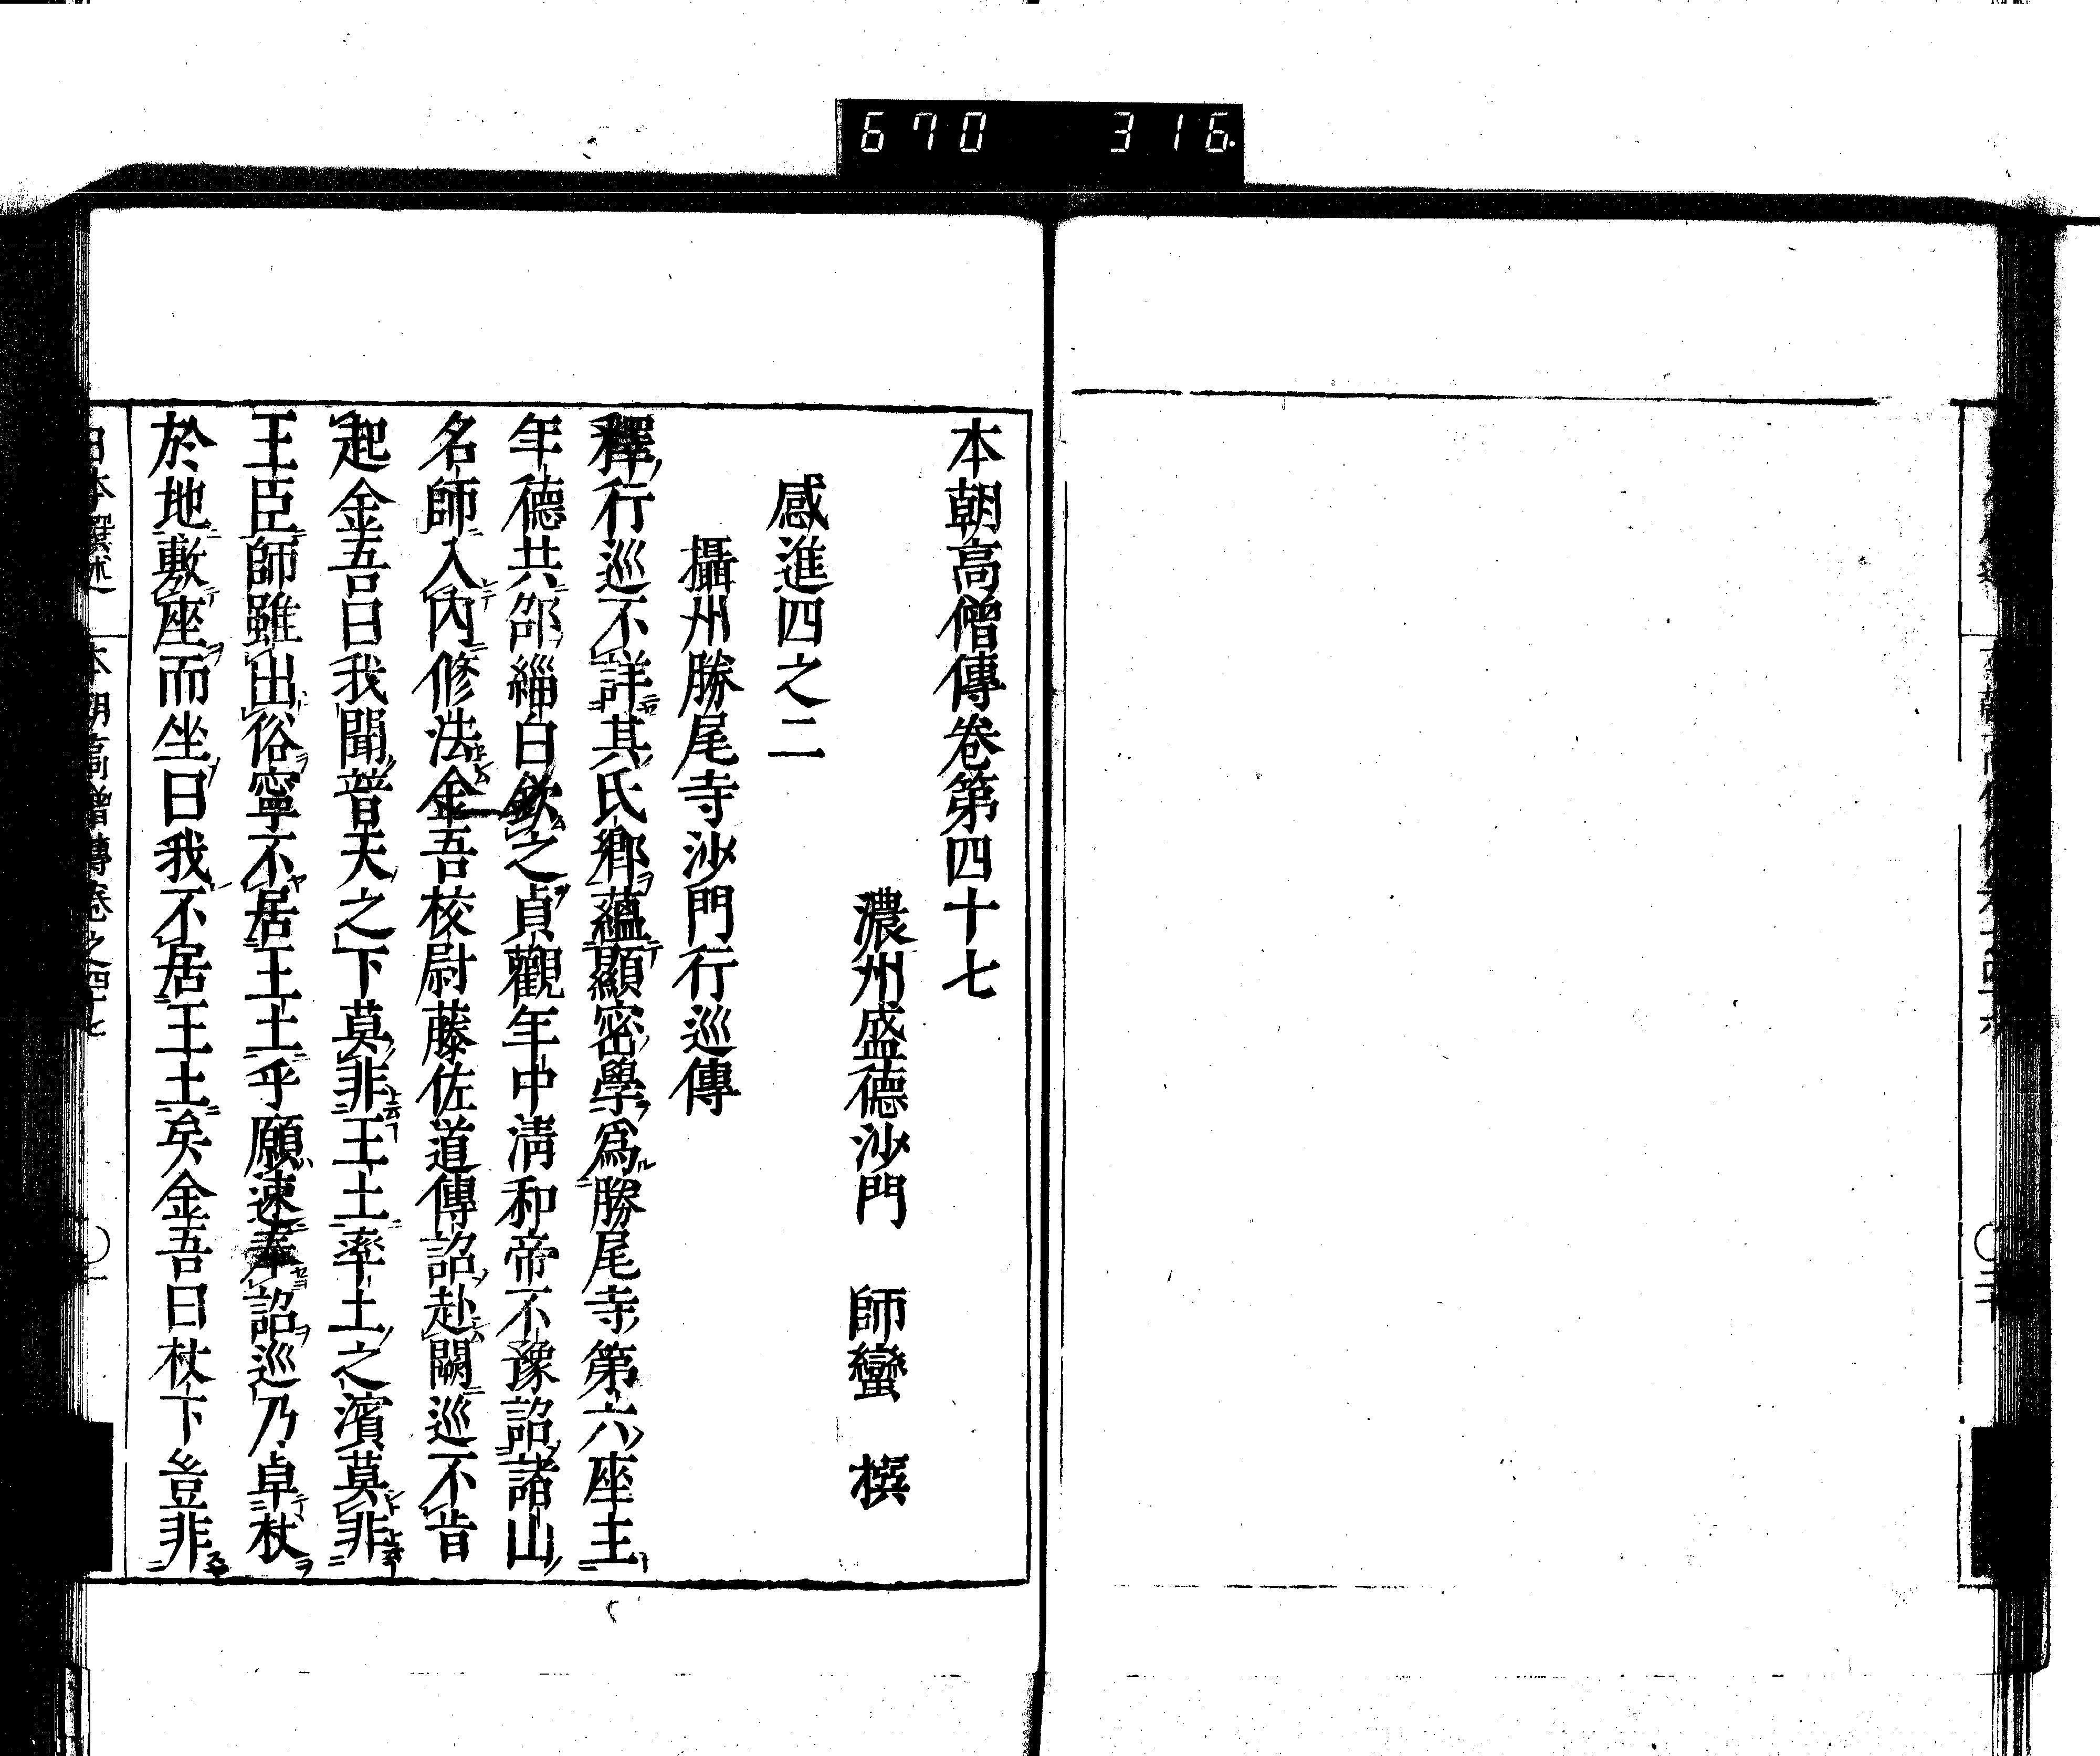 670 316.
本朝高僧傳卷第四十七
濃州盛德沙門 師蠻 撰
感進四之二
攝州勝尾寺沙門行巡傳
釋行巡不詳其氏鄉蘊顯密學爲勝尾寺第六座主
年德共邵緇白欽之貞觀年中淸和帝不豫詔諸山
名師入內修法金吾校尉藤佐道傳詔赴闕巡不肯
起金吾曰我聞普天之下莫非王土率土之濱莫非
王臣師雖出俗寧不居王土乎願速奉詔巡乃卓杖
於地敷座而坐曰我不居王土矣金吾曰杖下豈非
日本撰述 本朝高僧傳卷之四十七 〇一